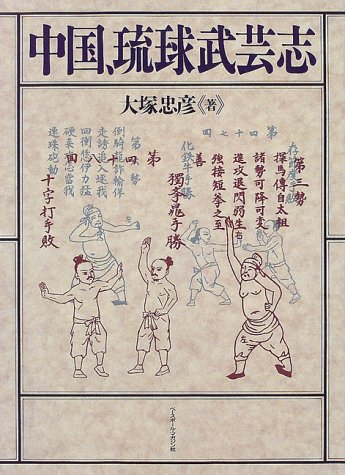 中国、琉球武芸志
大塚忠彦《著》
第二勢
探馬傳自太祖
諸勢可降可変
進攻退閃弱生
強接短拳之至
善
手勝
第
四
十
十字打手敗
四十七四
手勝
第 勢
倒騎龍詐輸佯
走誘追入遂我
回衝恁伊力猛
硬来攻怎當我
連珠砲動
右
左
ベースボール・マガジン社